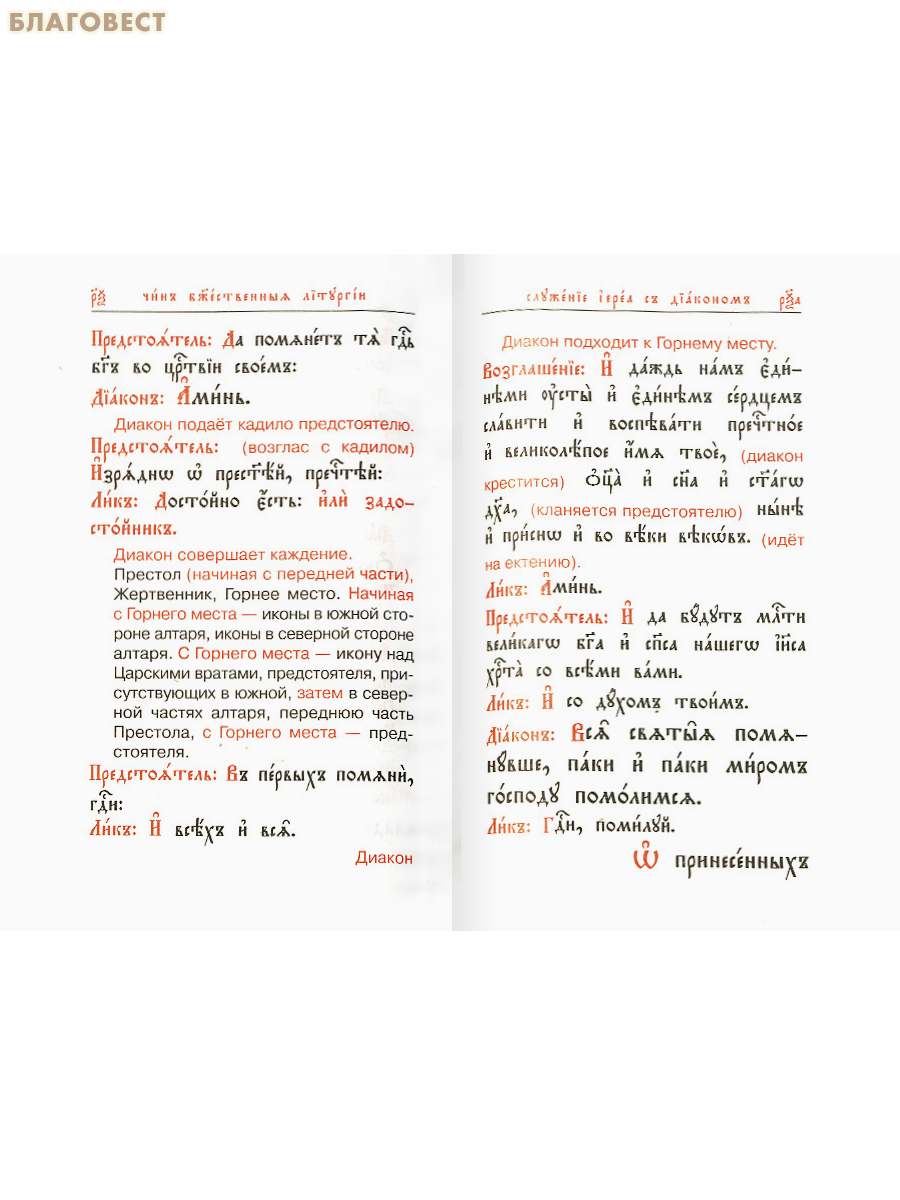 БЛАГОВЕСТ
р҃ѯ чи́нъ бж҃е́ственныѧ літꙋргі́и
Предстоѧ́тель: Да помѧне́тъ тѧ̀ гдⷭ҇ь
бг҃ъ во црⷭ҇твіи свое́мъ:
Дїа́конъ: А҆ми́нь.
Диакон подаёт кадило предстоятелю.
Предстоѧ́тель: (возглас с кадилом)
И҆зрѧ́днѡ ѡ҆ прест҃ѣ́й, пречⷭ҇тѣй:
Ли́къ: Досто́йно є҆́сть: и҆лѝ задо-
сто́йник.
Диакон совершает каждение.
Престол (начиная с передней части),
Жертвенник, Горнее место. Начиная
с Горнего места — иконы в южной сто-
роне алтаря, иконы в северной стороне
алтаря. С Горнего места — икону над
Царскими вратами, предстоятеля, при-
сутствующих в южной, затем в север-
ной частях алтаря, переднюю часть
Престола, с Горнего места — пред-
стоятеля.
Предстоѧ́тель: Въ пе́рвыхъ помѧнѝ,
гдⷭ҇и:
Ли́къ: И҆ всѣ́хъ и҆ всѧ̑.
Диакон
слꙋже́ніе і҆ере́а съ дїа́кономъ рѯ҃а
Диакон подходит к Горнему месту.
Возглаше́ніе: И҆ да́ждь на́мъ є҆ди́-
нѣми ᲂу҆сты̀ и҆ є҆ди́нѣмъ се́рдцемъ
сла́вити и҆ воспѣва́ти пречⷭ҇тно́е
и҆ великолѣ́пое и҆́мѧ твоѐ, (диакон
крестится) ѻ҆ц҃а̀ и҆ сн҃а и҆ ст҃а́гѡ
дх҃а, (кланяется предстоятелю) ны́нѣ
и҆ при́снѡ и҆ во вѣ́ки вѣкѡ́въ. (идёт
на ектению).
Ли́къ: А҆ми́нь.
Предстоѧ́тель: И҆ да бꙋ́дꙋтъ млⷭ҇ти
вели́кагѡ бг҃а и҆ сп҃са на́шегѡ і҆и҃са
хрⷭ҇та̀ со всѣ́ми ва́ми.
Ли́къ: И҆ со дꙋ́хомъ твои́мъ.
Дїа́конъ: Всѧ̑ свѧты̑ѧ помѧ-
нꙋ́вше, па́ки и҆ па́ки ми́ромъ
го́сподꙋ помо́лимсѧ.
Ли́къ: Гдⷭ҇и, поми́лꙋй.
Ѡ҆ принесе́нныхъ